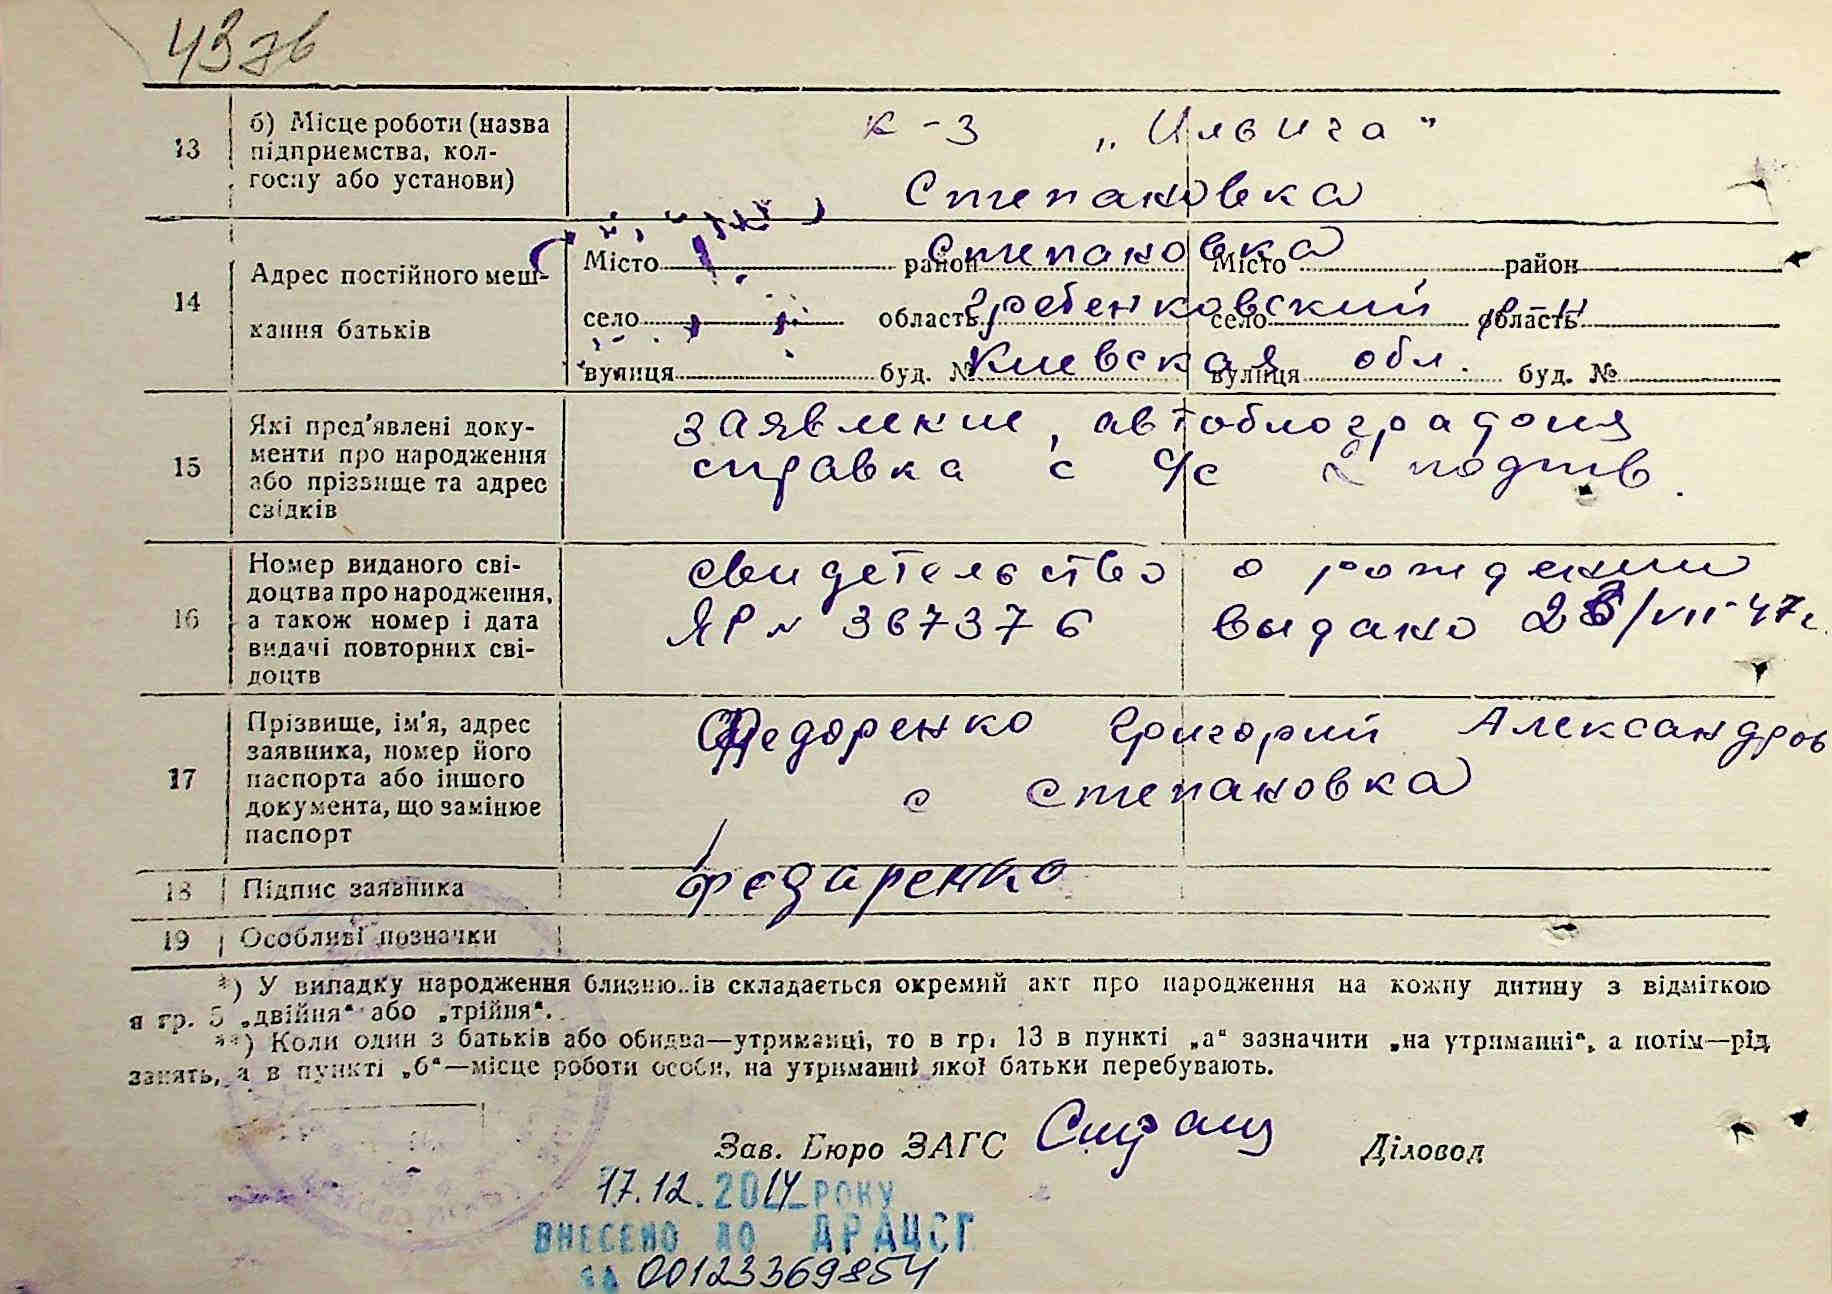 43 зв
13
б) Місце роботи (назва
підприємства, кол-
госпу або установи)
к-з „Ильича"
Степановка
14
Адрес постійного меш-
кання батьків
Місто район Місто район
Степановка
село область село область
Гребенковский р-н
вулиця буд. № вулиця буд. №
Киевская обл.
15
Які пред'явлені доку-
менти про народження
або прізвище та адрес
свідків
заявление, автобиография
справка с с/с 2 подтв.
16
Номер виданого сві-
доцтва про народження,
а також номер і дата
видачі повторних сві-
доцтв
свидетельство о рождении
ЯР № 367376 выдано 26/VII-47г.
17
Прізвище, ім'я, адрес
заявника, номер його
паспорта або іншого
документа, що замінює
паспорт
Федоренко Григорий Александров
с Степановка
18
Підпис заявника
Федаренко
19
Особливі позначки
*) У випадку народження близню..ів складається окремий акт про народження на кожну дитину з відміткою
я гр. 5 „двійня" або „трійня".
**) Коли один з батьків або обидва—утриманці, то в гр. 13 в пункті „а" зазначити „на утриманні", а потім—рід
занять, а в пункті „б"—місце роботи особи, на утриманні якої батьки перебувають.
Зав. Бюро ЗАГС Діловод
17.12.2014 РОКУ
ВНЕСЕНО ДО ДРАЦСГ
за 00123369854